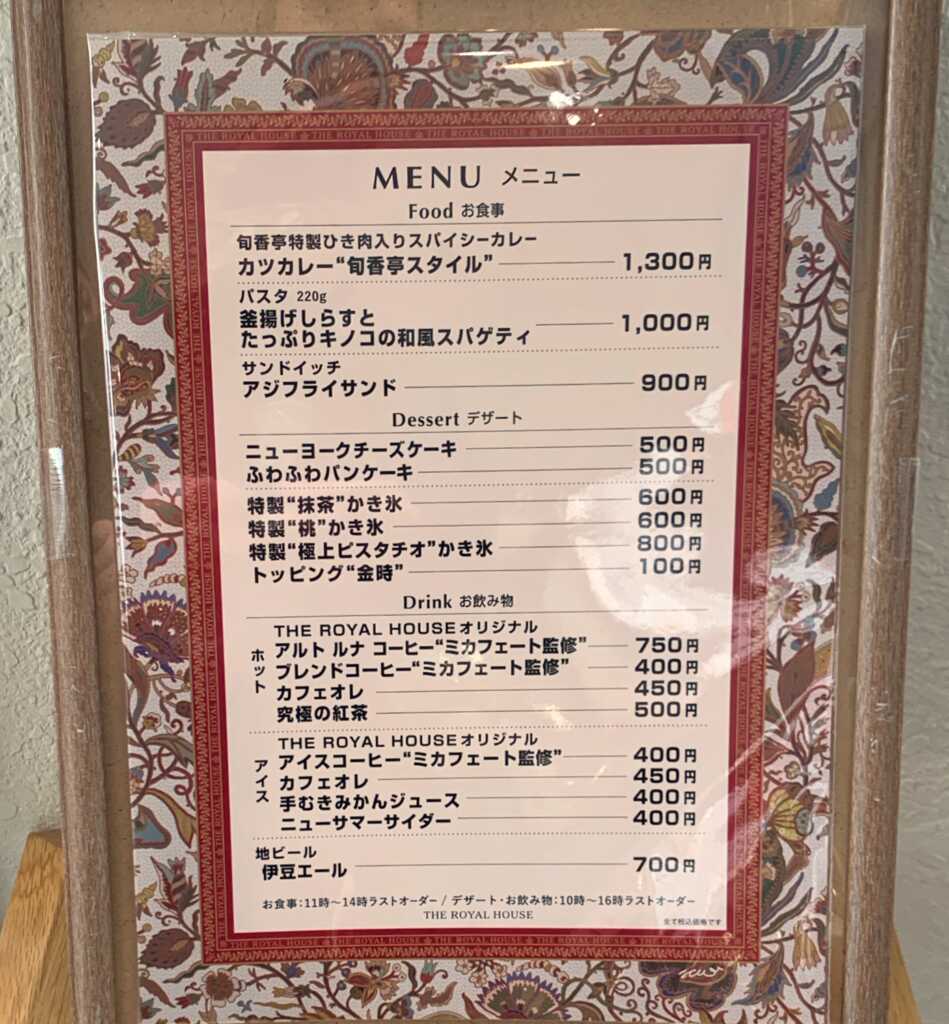 THE ROYAL HOUSE THE ROYAL HOUSE THE ROYAL HOUSE THE ROYAL HOUSE THE ROYAL HOUSE
MENU メニュー
Food お食事
旬香亭特製ひき肉入りスパイシーカレー
カツカレー“旬香亭スタイル” 1,300円
パスタ 220g
釜揚げしらすと
たっぷりキノコの和風スパゲティ 1,000円
サンドイッチ
アジフライサンド 900円
Dessert デザート
ニューヨークチーズケーキ 500円
ふわふわパンケーキ 500円
特製“抹茶”かき氷 600円
特製“桃”かき氷 600円
特製“極上ピスタチオ”かき氷 800円
トッピング“金時” 100円
Drink お飲み物
ホット
THE ROYAL HOUSEオリジナル
アルト ルナ コーヒー“ミカフェート監修” 750円
ブレンドコーヒー“ミカフェート監修” 400円
カフェオレ 450円
究極の紅茶 500円
アイス
THE ROYAL HOUSEオリジナル
アイスコーヒー“ミカフェート監修” 400円
カフェオレ 450円
手むきみかんジュース 400円
ニューサマーサイダー 400円
地ビール
伊豆エール 700円
お食事：11時〜14時ラストオーダー / デザート・お飲み物：10時〜16時ラストオーダー
THE ROYAL HOUSE
全て税込価格です